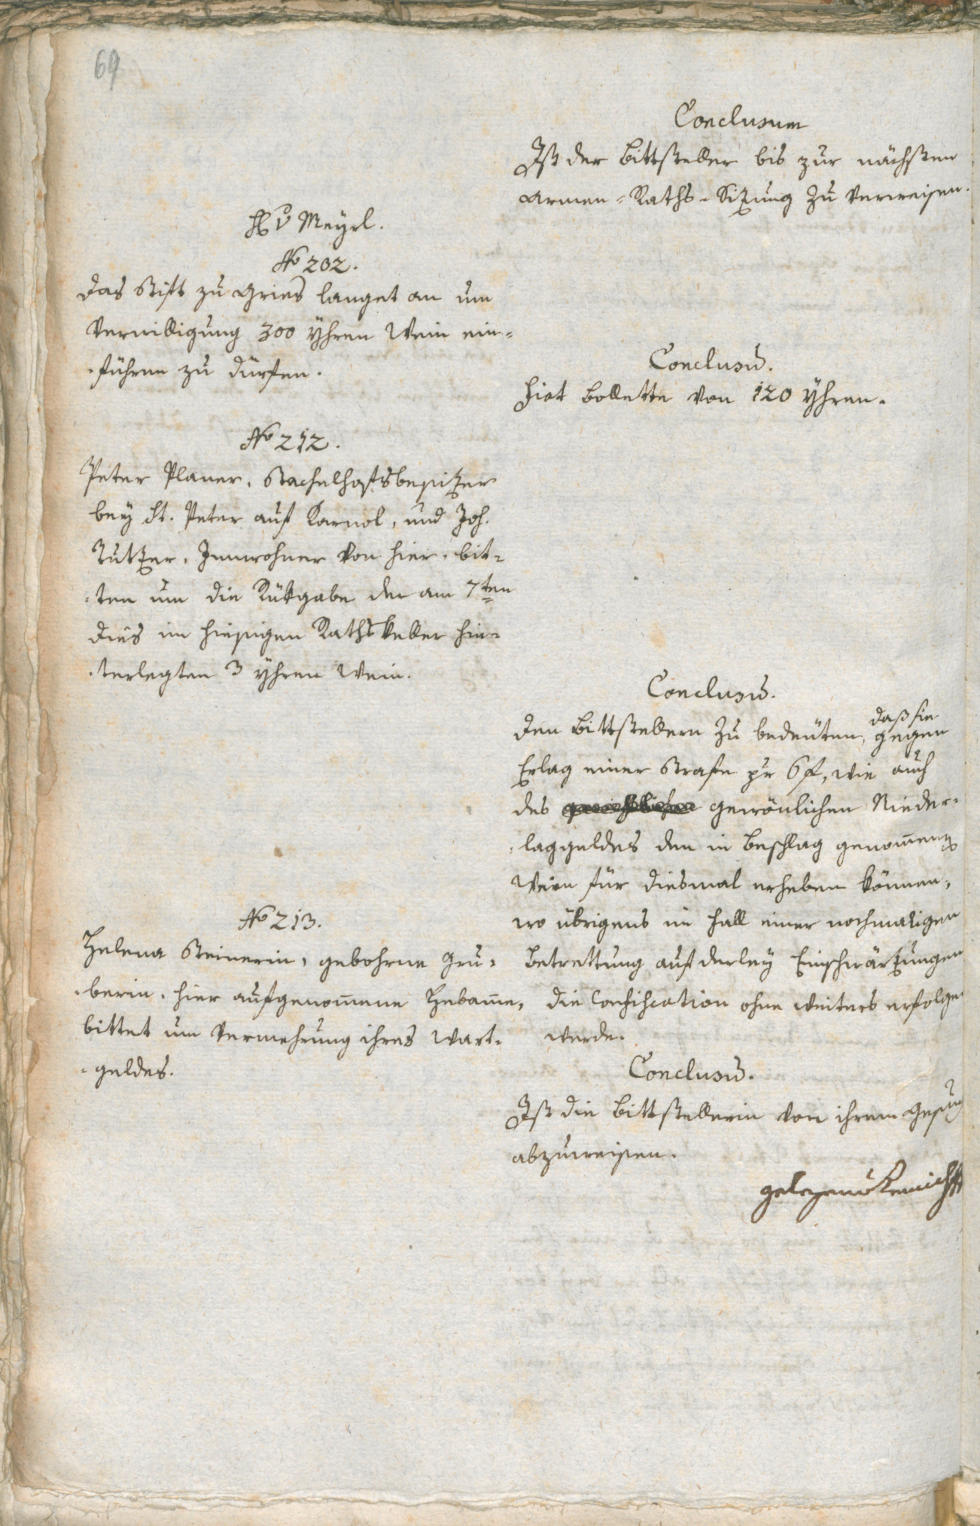 69
Conclusum
Ist der Bittsteller bis zur nächsten
Armen-Raths-Sitzung zu verweisen.
H v Meyrl.
No 202.
Das Stift zu Gries langet an um
Verwilligung 300 Yhren Wein ein-
führen zu dürfen.
Conclusū.
Fiat Bollette von 120 Yhren.
No 212.
Peter Planer, Stachelhofsbesitzer
bey St. Peter auf Karnol, und Joh.
Tutzer, Innwohner von hier, bit-
ten um die Rükgabe der am 7ten
dies im hiesigen Rathskeller hin-
terlegten 3 Yhren Wein.
Conclusū.
Den Bittstellern zu bedeuten, daß sie gegen
Erlag einer Strafe pr 6 f, wie auch
des gewönlichen Nieder-
laggeldes den in Beschlag genom̄enen
Wein für diesmal erheben können,
wo übrigens im Fall einer nochmaligen
Betrettung auf derley Einschwärzungen
die Confiscation ohne weiters erfolgen
werde.
No 213.
Helena Steinerin, gebohrne Gru-
berin, hier aufgenom̄ene Hebam̄e,
bittet um Vermehrung ihres Wart-
geldes.
Conclusū.
Ist die Bittstellerin von ihrem Gesuch
abzuweisen.